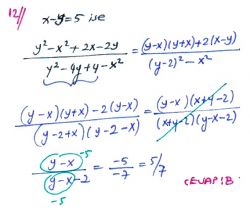 12// x-y=5 ise
(y²-x²+2x-2y)/(y²-4y+4-x²) = ((y-x)(y+x)+2(x-y))/((y-2)²-x²)
((y-x)(y+x)-2(y-x))/((y-2+x)(y-2-x)) = ((y-x)(x+y-2))/((x+y-2)(y-x-2))
(y-x)/(y-x-2) = -5/-7 = 5/7
-5
-5
CEVAP:B